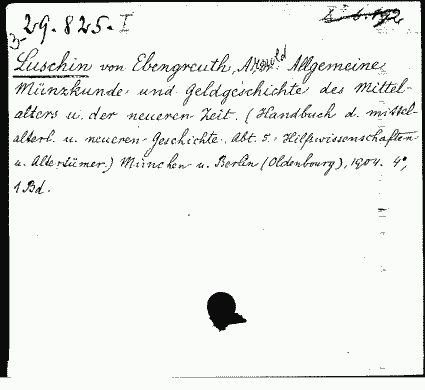 29.825.I
Luschin von Ebengreuth, Arnold Allgemeine
Münzkunde und Geldgeschichte des Mittel-
alters u. der neueren Zeit. (Handbuch d. mittel-
alterl. u. neueren Geschichte. Abt. 5. Hilfswissenschaften
u. Altertümer.) München u. Berlin (Oldenbourg), 1904. 4°,
1 Bd.